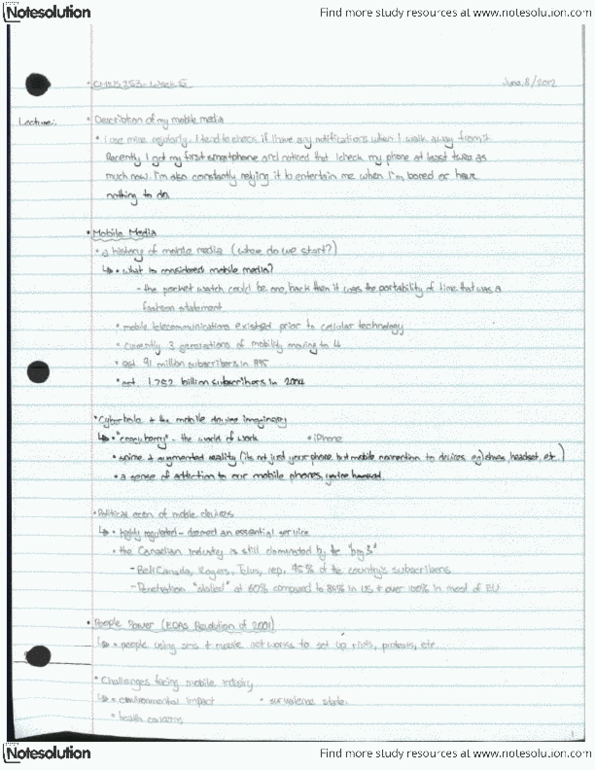 Notesolution
Find more study resources at www.notesolution.com
Week 6
June 8/2012
Lecture:
• Description of my mobile media
• I use mine regularly. I tend to check if I have any notifications when I walk away from it.
Recently I got my first smartphone and noticed that I check my phone at least twice as
much now. I'm also constantly relying it to entertain me when I'm bored or have
nothing to do.
• Mobile Media
• a history of mobile media (where do we start?)
↳ • what is considered mobile media?
- the pocket watch could be one, back then it was the portability of time that was a
fashion statement
• mobile telecommunications existed prior to cellular technology
• currently 3 generations of mobility moving to 4
• est. 91 million subscribers in 1995
• est. 1.752 billion subscribers in 2004
• + the mobile imaginary
↳ • "crackberry" - the world of work • iPhone
• + augmented reality (its not just your phone but mobile connection to devices eg) shoes, headset, etc.)
• a sense of addiction to our mobile phones,
• Political econ of mobile devices
↳ • highly regulated - deemed an essential service
• the Canadian Industry is still dominated by the "big 3"
- Bell Canada, Rogers, Telus, rep. 95% of the country's subscribers
- Penetration "stalled" at 60% compared to in US + over 100% in most of EU
• People Power (EDAS Revolution of 2001)
↳ • people using sms + mobile networks to set up riots, protests, etc.
• Challenges facing mobile industry
↳ • environmental impact • surveillance state.
• health concerns
1
Notesolution
Find more study resources at www.notesolution.com